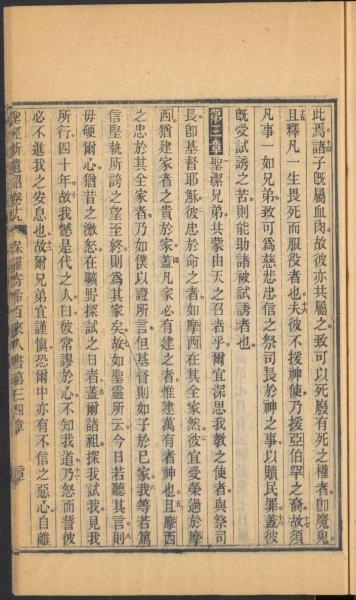 此焉諸子既屬血肉故彼亦共屬之致可以死廢有死之權者卽魔鬼
且釋凡一生畏死而服役者也夫彼不援神使乃援亞伯罕之裔故須
凡事一如兄弟致可為慈悲忠信之祭司長於神之事以贖民罪蓋彼
既受試誘之苦則能助諸被試誘者也
第三章聖潔兄弟共蒙由天之召者乎爾宜深思我教之使者與祭司
長卽基督耶穌彼忠於命之者如摩西在其全家然彼宜受榮過於摩
西猶建家者之貴於家蓋凡家必有建之者惟建萬有者神也且摩西
之忠於其全家者乃如僕以證所言但基督則如子於己家我等若篤
信堅執所誇之望至終則為其家矣故如聖靈所云今日若聽其言則
毋硬爾心猶昔之激怒在曠野探試之日者蓋爾諸祖探我試我見我
所行四十年故我憾是代之人曰彼常謬於心不知我道乃怒而誓彼
必不進我之安息也故爾兄弟宜謹慎恐爾中亦有不信之惡心自離
聖經新遺詔卷九 保羅寄希百來人書第三四章